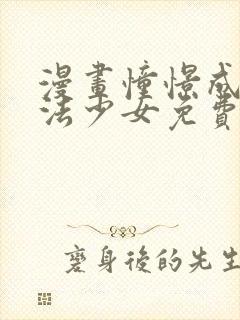 漫畫憧憬成
法少女免費
變身後的先生